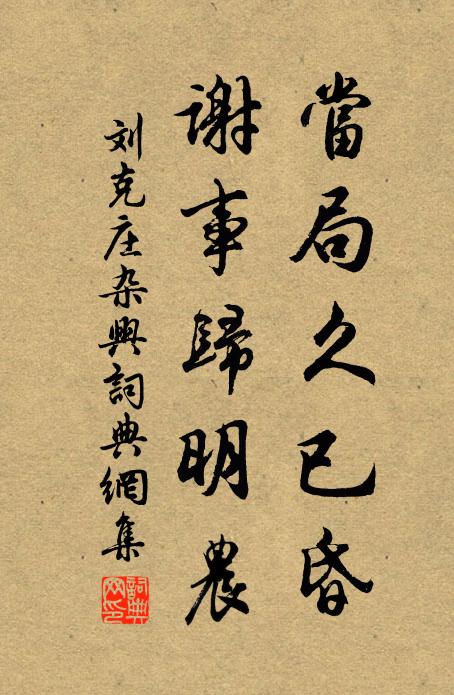 當局久已昏
謝事歸明農
刘克庄杂興詞典網集
詞典网印